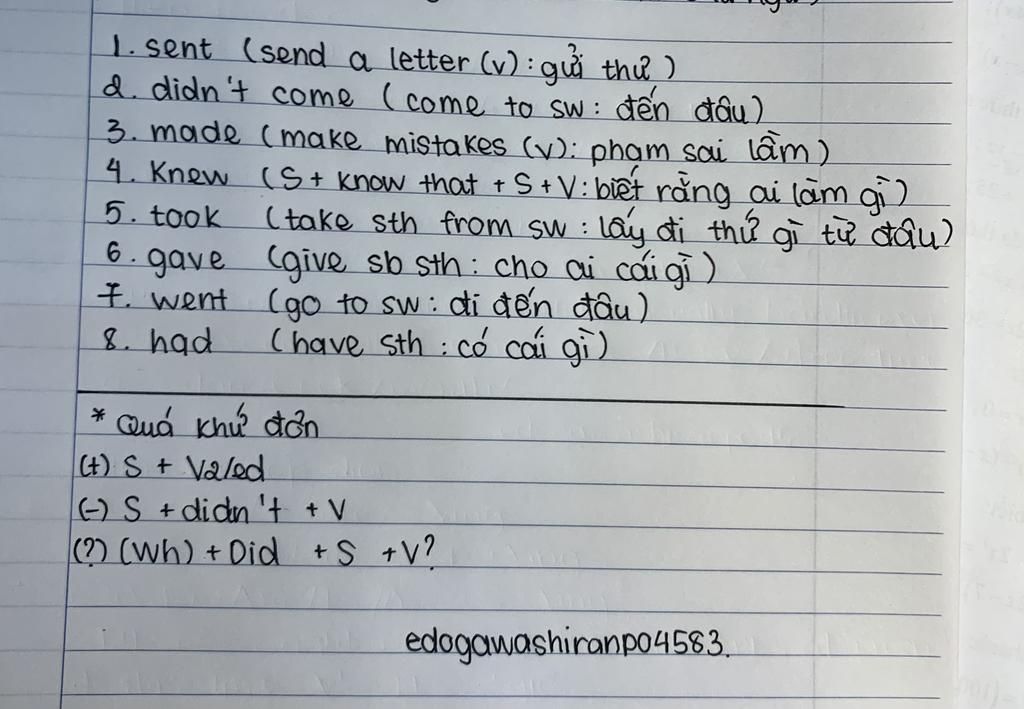 1. sent (send a letter (v) : gửi thư)
2. didn't come (come to sw : đến đâu)
3. made (make mistakes (v) : phạm sai lầm)
4. Knew (S + know that + S + V : biết rằng ai làm gì)
5. took (take sth from sw : lấy đi thứ gì từ đâu)
6. gave (give sb sth : cho ai cái gì)
7. went (go to sw : đi đến đâu)
8. had (have sth : có cái gì)
* Quá khứ đơn
(+) S + V2/ed
(-) S + didn't + V
(?) (Wh) + Did + S + V?
edogawashiranpo4583.